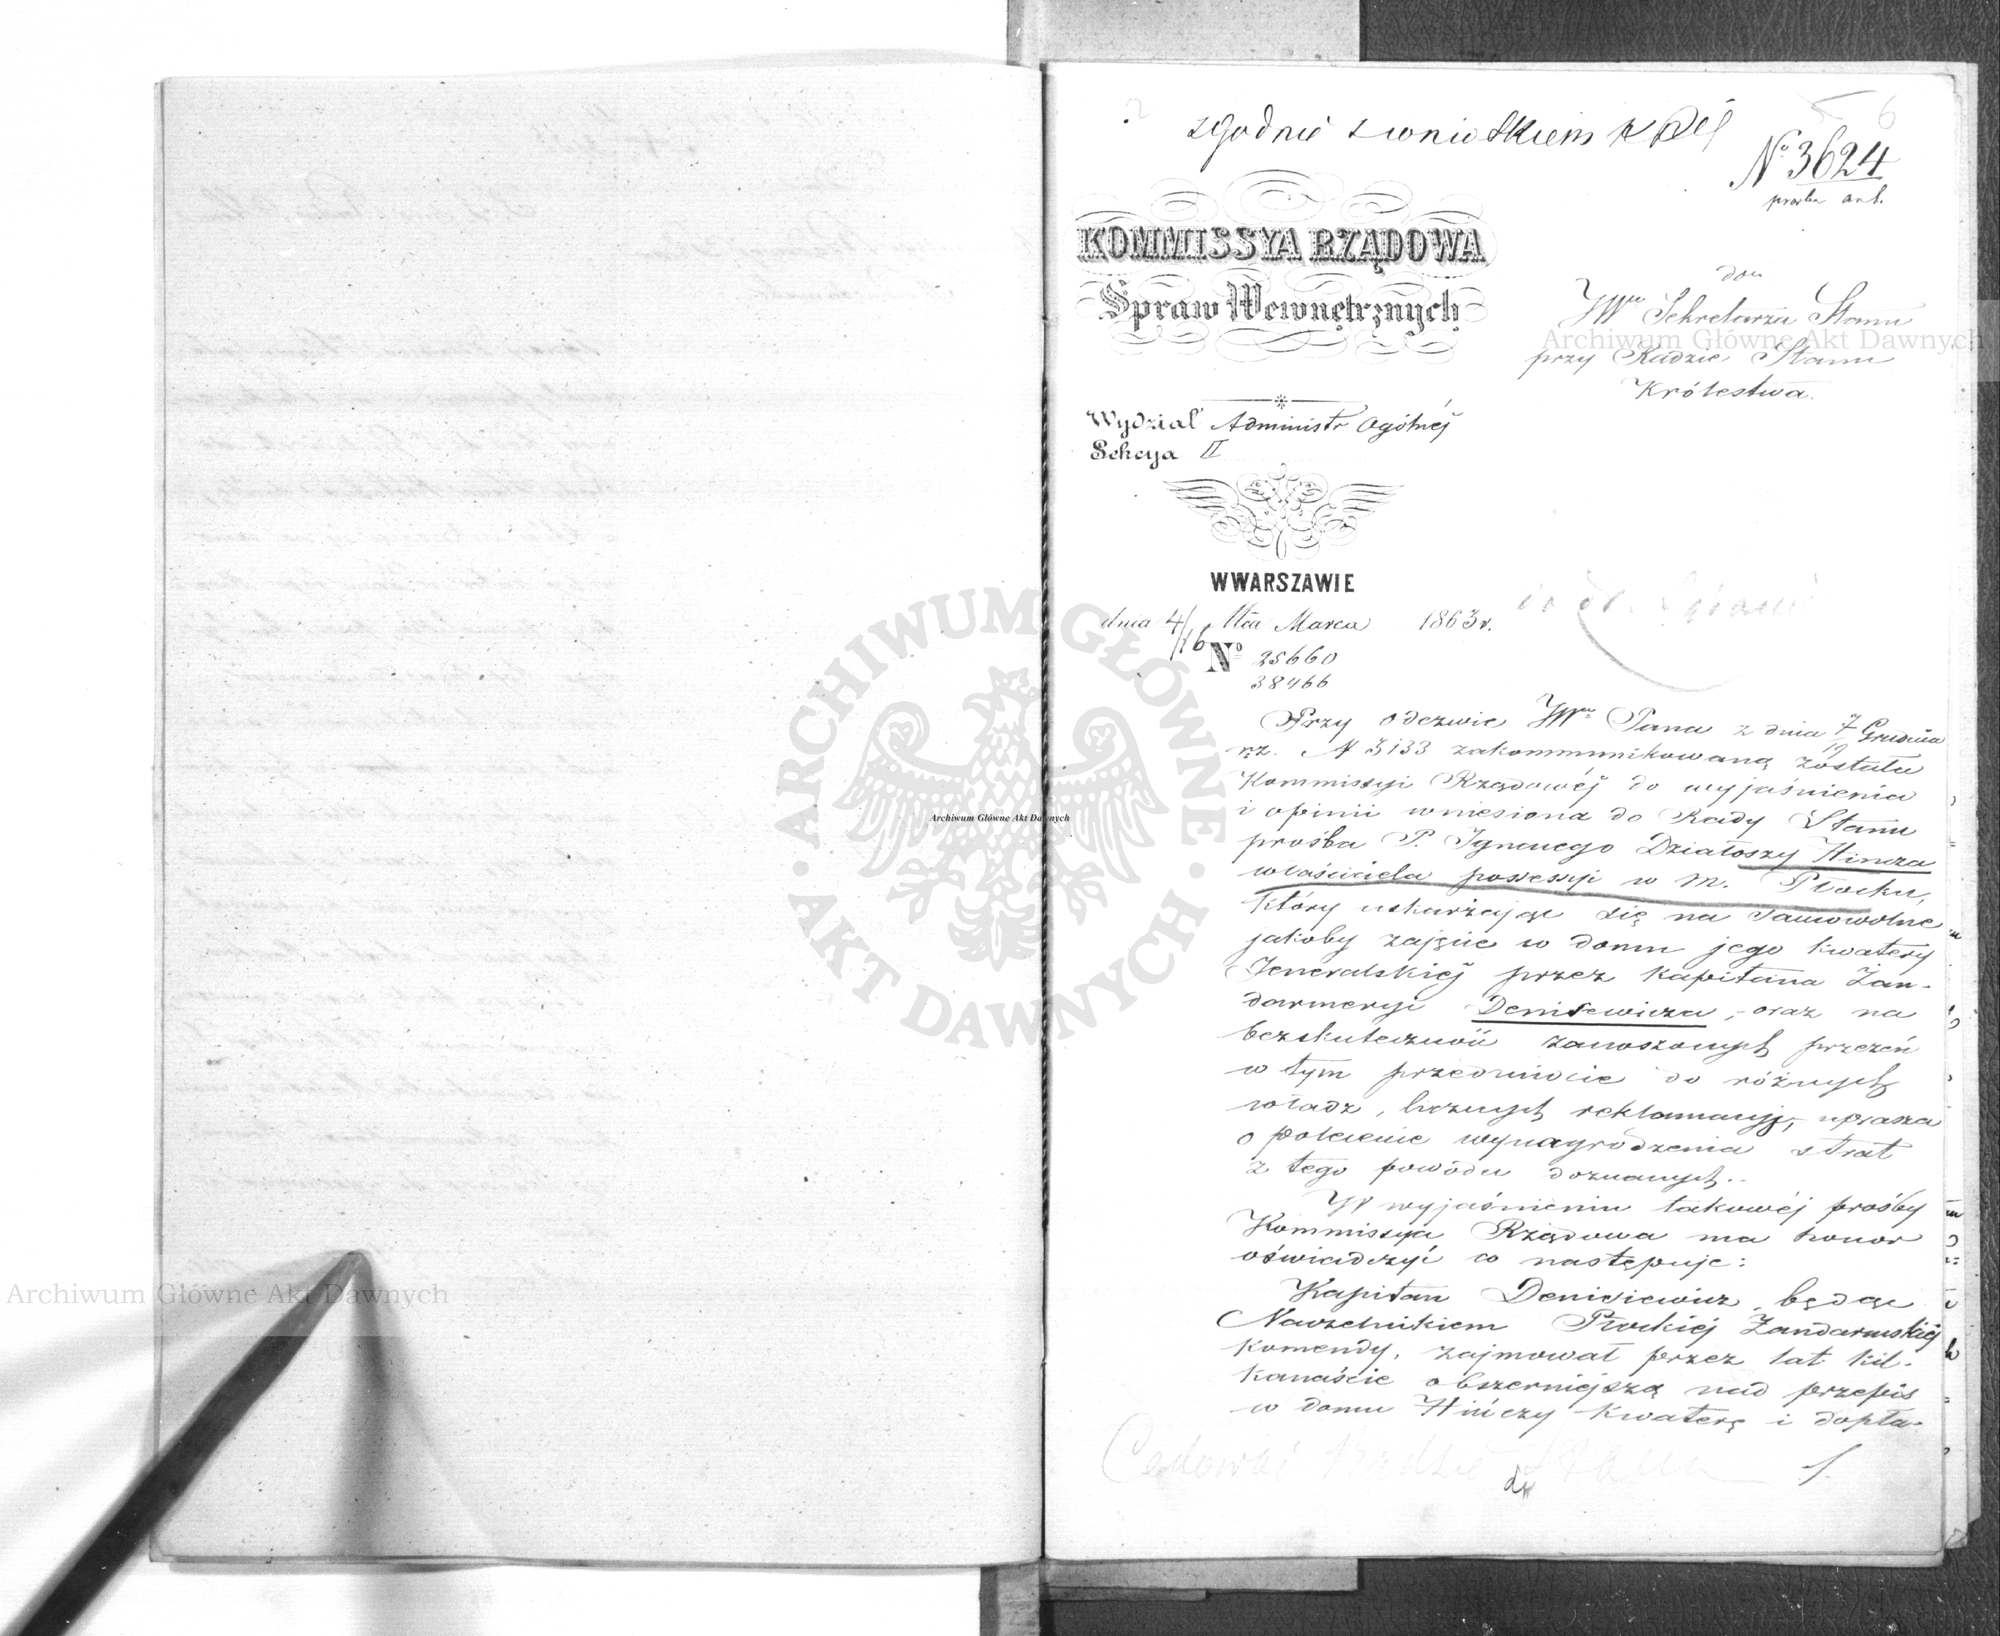 6
zgodnie z wnioskiem
№ 3624
prośba
KOMMISSYA RZĄDOWA
Spraw Wewnętrznych
Do
JWgo Sekretarza Stanu
przy Radzie Stanu
Królestwa.
Wydział Administr Ogólnéj
Sekcya II
W WARSZAWIE
dnia 4/16 Mca Marca 1863 r.
№ 25660
38466
Przy odezwie JWgo Pana z dnia 7/19 Grudnia
rz. N 3133 zakommunikowaną została
Kommissyi Rządowéj do wyjaśnienia
i opinii wniesiona do Rady Stanu
prośba P. Ignacego Działoszy Hincza
właściciela possessyi w m. Płocku,
który uskarżając się na samowolne
jakoby zajęcie w domu jego kwatery
Jeneralskiéj przez Kapitana Żan-
darmeryi Denisiewicza, oraz na
bezskuteczność zanoszonych przezeń
w tym przedmiocie do różnych
władz, licznych reklamacyj, uprasza
o polecenie wynagrodzenia strat
z tego powodu doznanych.
W wyjaśnieniu takowéj prośby
Kommissya Rządowa ma honor
oświadczyć co następuje:
Kapitan Denisiewicz, będąc
Naczelnikiem Płockiéj Żandarmskiéj
Komendy, zajmował przez lat kil-
kanaście obszerniejszą nad przepis
w domu Hińczy kwaterę i dopła-
Radzie Stanu
Archiwum Główne Akt Dawnych
Archiwum Główne Akt Dawnych
Archiwum Główne Akt Dawnych
ARCHIWUM GŁÓWNE AKT DAWNYCH